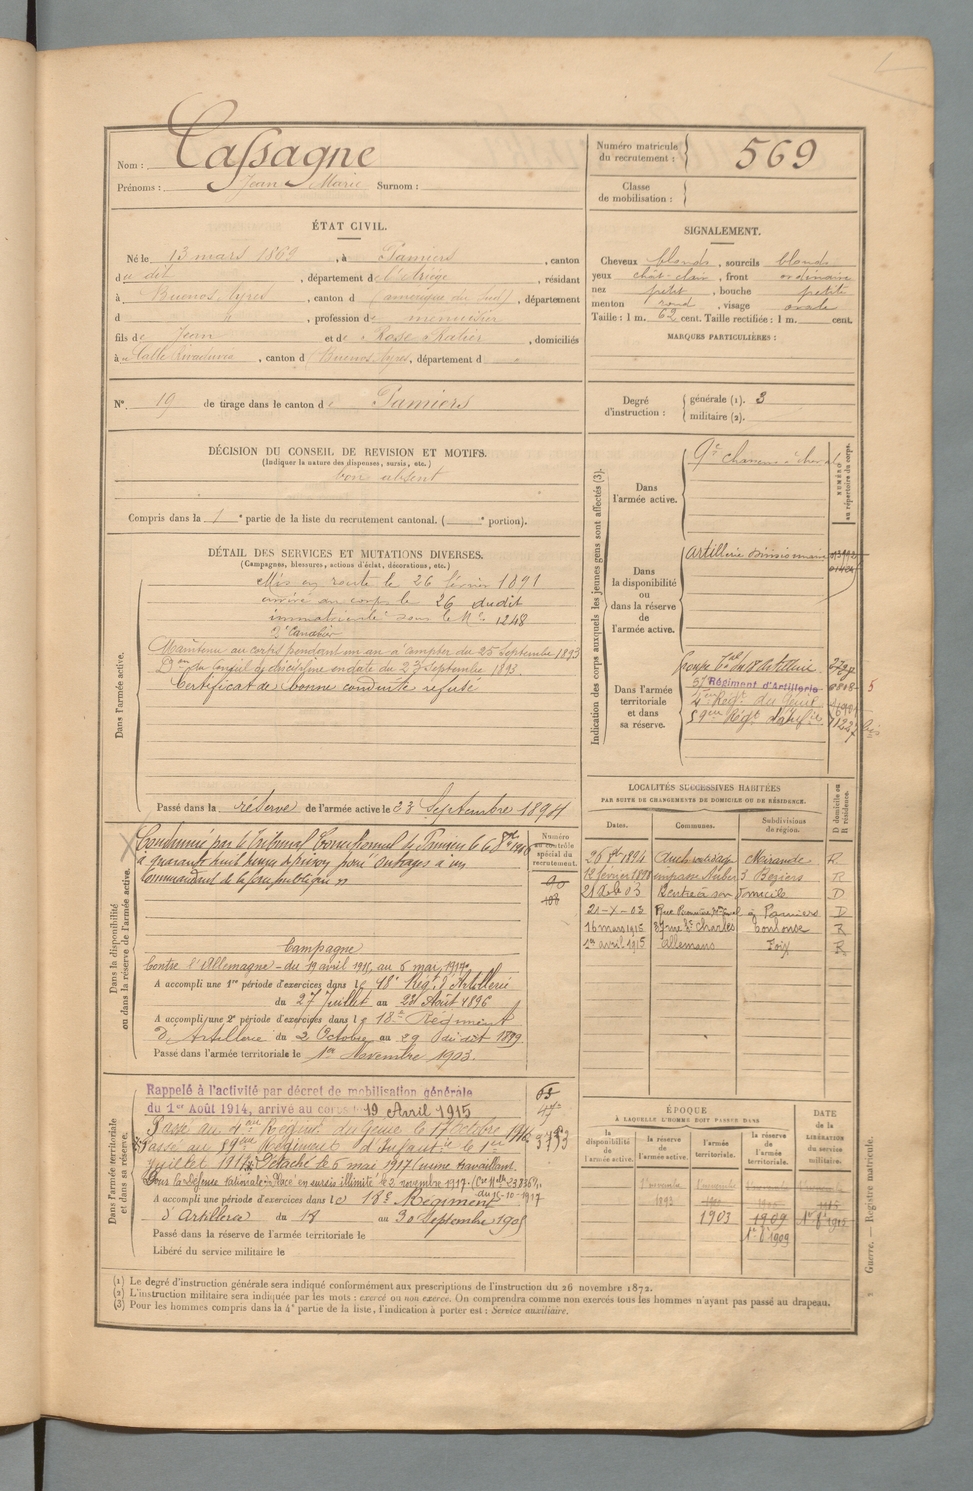 Nom : Cassagne
Prénoms : Jean Marie Surnom :
Numéro matricule du recrutement : 569
Classe de mobilisation :
ÉTAT CIVIL.
Né le 13 mars 1869, à Pamiers, canton
du dit, département de l'Ariège, résidant
à Buenos Ayres, canton d (amérique du Sud), département
d , profession de menuisier
fils de Jean et de Rose, domiciliés
à Calle Rivadavia, canton d Buenos Ayres, département d
N° 19 de tirage dans le canton de Pamiers
SIGNALEMENT.
Cheveux blonds, sourcils blonds
yeux chât-clair, front ordinaire
nez petit, bouche petite
menton rond, visage ovale
Taille : 1 m. 62 cent. Taille rectifiée : 1 m. cent.
MARQUES PARTICULIÈRES :
Degré d'instruction : générale (1). 3
militaire (2).
DÉCISION DU CONSEIL DE REVISION ET MOTIFS.
(Indiquer la nature des dispenses, sursis, etc.)
bon absent
Compris dans la 1e partie de la liste du recrutement cantonal. ( e portion).
DÉTAIL DES SERVICES ET MUTATIONS DIVERSES.
(Campagnes, blessures, actions d'éclat, décorations, etc.)
Dans l'armée active.
Mis en route le 26 février 1891
arrivé au corps le 26 dudit
immatriculé sous le N° 1248
Maintenu au corps pendant un an à compter du 25 Septembre 1893
Don du Conseil de discipline en date du 23 Septembre 1893
Certificat de bonne conduite refusé
Passé dans la réserve de l'armée active le 23 Septembre 1894
Indication des corps auxquels les jeunes gens sont affectés (3).
NUMÉRO au répertoire du corps.
Dans l'armée active.
9e chasseurs à cheval
Dans la disponibilité ou dans la réserve de l'armée active.
artillerie divisionnaire
Dans l'armée territoriale et dans sa réserve.
Groupe tal du 18e Artillerie
57 Régiment d'Artillerie
2eme Régt du Génie
59eme Régt d'Infie
5
LOCALITÉS SUCCESSIVES HABITÉES
PAR SUITE DE CHANGEMENTS DE DOMICILE OU DE RÉSIDENCE.
Dates. Communes. Subdivisions de région. D domicile ou R résidence.
26 8bre 1894 Auch Mirande R
12 février 1898 impasse 3 Beziers R
21 03 Rentre à son Domicile D
21-X-03 Pamiers D
16 mars 1915 37 rue St Charles Toulouse R
1er avril 1915 Allemans Foix R
Dans la disponibilité ou dans la réserve de l'armée active.
Numéro au contrôle spécial du recrutement.
Condamné par le Tribunal Correctionnel de Pamiers le 6 8bre
à quarante huit heures de prison pour "outrages à un
Commandant de la force publique"
90
108
Campagne
Contre l'Allemagne - du 19 avril 1915 au 5 mai 1917
A accompli une 1re période d'exercices dans le 18e Régt d'Artillerie
du 27 Juillet au 23 Août 1896
A accompli une 2e période d'exercices dans le 18e Régiment
d'Artillerie du 2 Octobre au 29 du dit 1899
Passé dans l'armée territoriale le 1er Novembre 1903.
Dans l'armée territoriale et dans sa réserve.
Rappelé à l'activité par décret de mobilisation générale
du 1er Août 1914, arrivé au corps le 19 Avril 1915
Passé au 2eme Régiment du Génie le 17 Octobre 1916
Passé au 59eme Régiment d'Infanterie le 1er
Juillet 1917. Détaché le 5 mai 1917 travaillant
pour la défense nationale. Placé en sursis illimité le 2 novembre 1917.
du 15-10-1917
A accompli une période d'exercices dans le 18e Régiment
d'Artillerie du 18 au 30 Septembre 1905
Passé dans la réserve de l'armée territoriale le
Libéré du service militaire le
ÉPOQUE
À LAQUELLE L'HOMME DOIT PASSER DANS
la disponibilité de l'armée active. la réserve de l'armée active. l'armée territoriale. la réserve de l'armée territoriale.
DATE de la LIBÉRATION du service militaire.
1er novembre 1893
1903
1909
1er 8bre 1909
1er 8bre 1915
(1) Le degré d'instruction générale sera indiqué conformément aux prescriptions de l'instruction du 26 novembre 1872.
(2) L'instruction militaire sera indiquée par les mots : exercé ou non exercé. On comprendra comme non exercés tous les hommes n'ayant pas passé au drapeau.
(3) Pour les hommes compris dans la 4e partie de la liste, l'indication à porter est : Service auxiliaire.
Guerre. — Registre matricule.